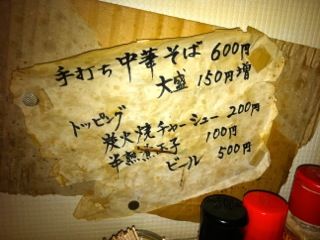 手打ち中華そば 600円
大盛 150円増
トッピング
炭火焼チャーシュー 200円
半熟煮玉子 100円
ビール 500円